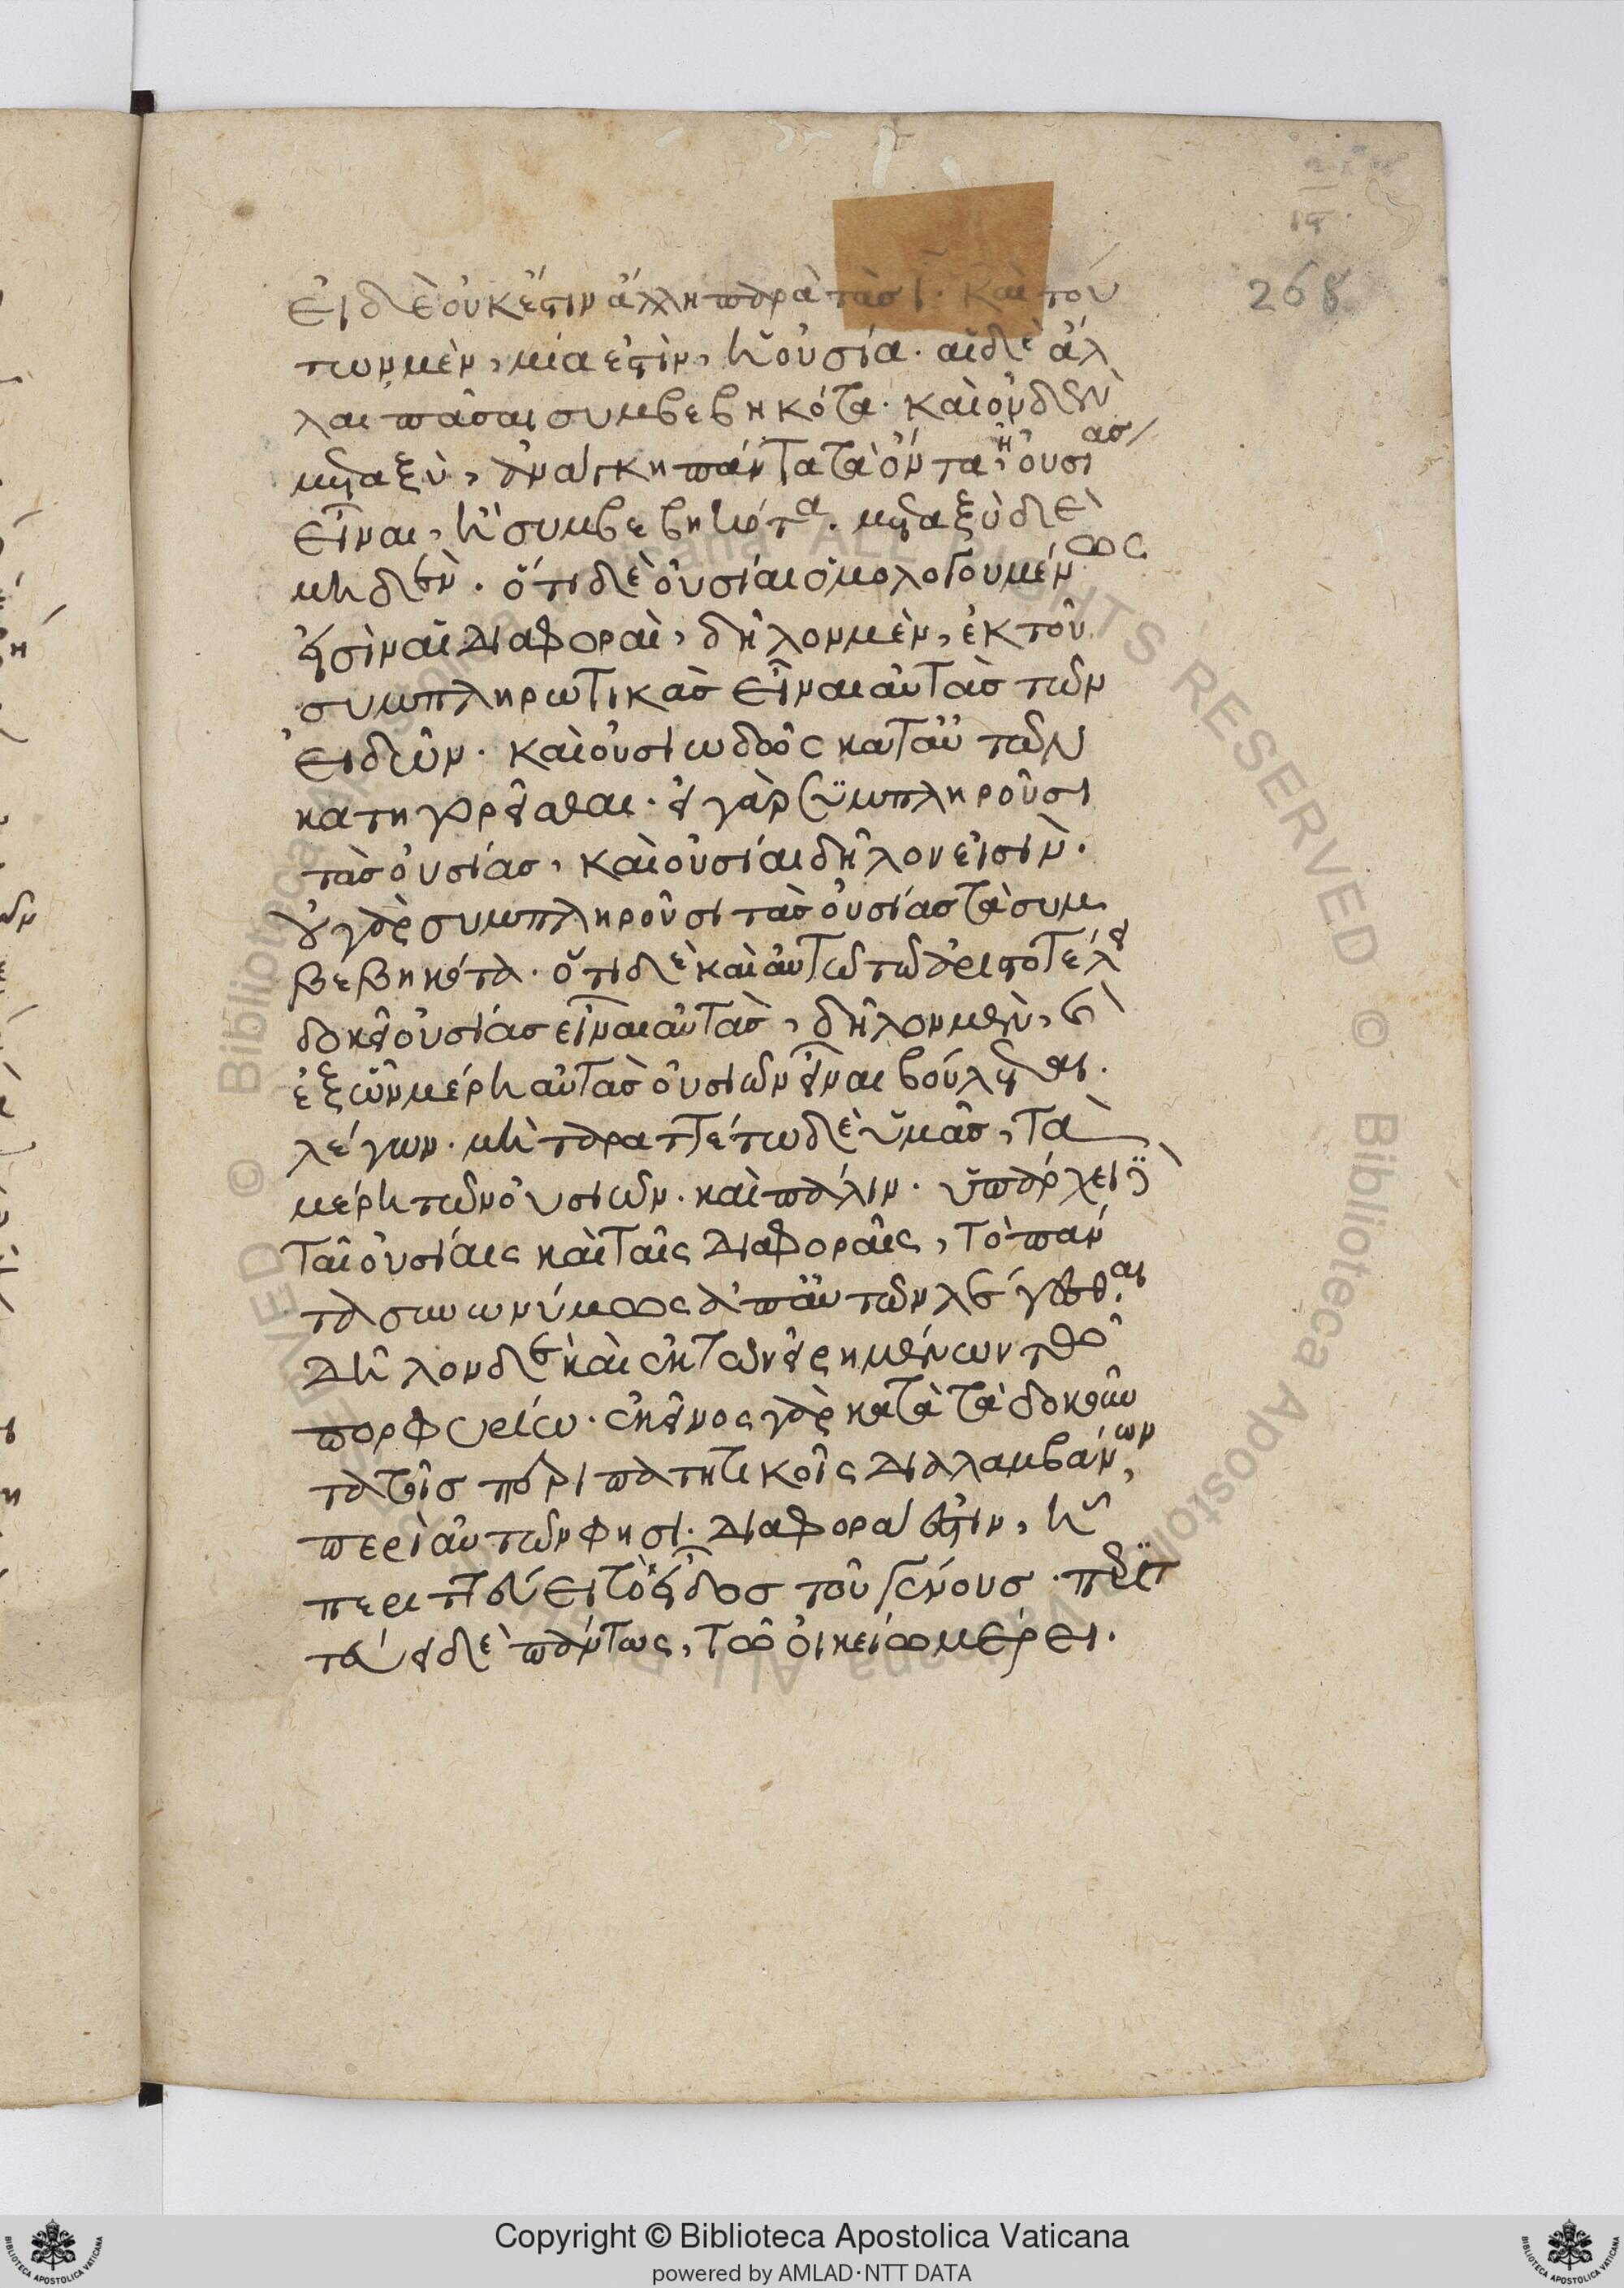 εἰ δὲ οὐκ ἔστιν ἄλλη παρὰ τὰς ι̅· καὶ τού
των μὲν, μία ἐστὶν, ἡ οὐσία· αἱ δὲ ἄλ
λαι πᾶσαι συμβεβηκότα· καὶ οὐδὲν
μεταξὺ, ἀνάγκη πάντα τὰ ὄντα, ἢ οὐσίας
εἶναι, ἢ συμβεβηκότα· μεταξὺ δὲ
μηδέν· ὅτι δὲ οὐσίαι ὁμολογουμένως
εἰσὶν αἱ διαφοραὶ, δῆλον μὲν, ἐκ τοῦ
συμπληρωτικὰς εἶναι αὐτὰς τῶν
εἰδῶν· καὶ οὐσιωδῶς κατ' αὐτῶν
κατηγορεῖσθαι· εἰ γὰρ συμπληροῦσι
τὰς οὐσίας, καὶ οὐσίαι δῆλον εἰσὶν·
οὐ γὰρ συμπληροῦσι τὰς οὐσίας τὰ συμ
βεβηκότα· ὅτι δὲ καὶ αὐτῷ τῷ ἀριστοτέλει
δοκεῖ οὐσίας εἶναι αὐτὰς, δῆλον μὲν, καὶ
ἐξ ὧν μέρη αὐτὰς οὐσιῶν εἶναι βούλεται·
λέγων· μὴ ταραττέτω δὲ ὑμᾶς, τὰ
μέρη τῶν οὐσιῶν· καὶ πάλιν· ὑπάρχει
ταῖ οὐσίαις καὶ ταῖς διαφοραῖς, τὸ πάν
τα συνωνύμως ἀπ' αὐτῶν λέγεσθαι
δῆλον δὲ καὶ ἐκ τῶν εἰρημένων τῷ
πορφυρίῳ· ἐκεῖνος γὰρ κατὰ τὰ δοκοῦν
τα τοῖς περιπατητικοῖς διαλαμβάνων,
περὶ αὐτῶν φησι· διαφορά ἐστιν, ᾗ
περιττεύει τὸ εἶδος τοῦ γένους· περιτ
τεύει δὲ πάντως, τῷ οἰκείῳ μέρει·
268
Copyright © Biblioteca Apostolica Vaticana
powered by AMLAD·NTT DATA